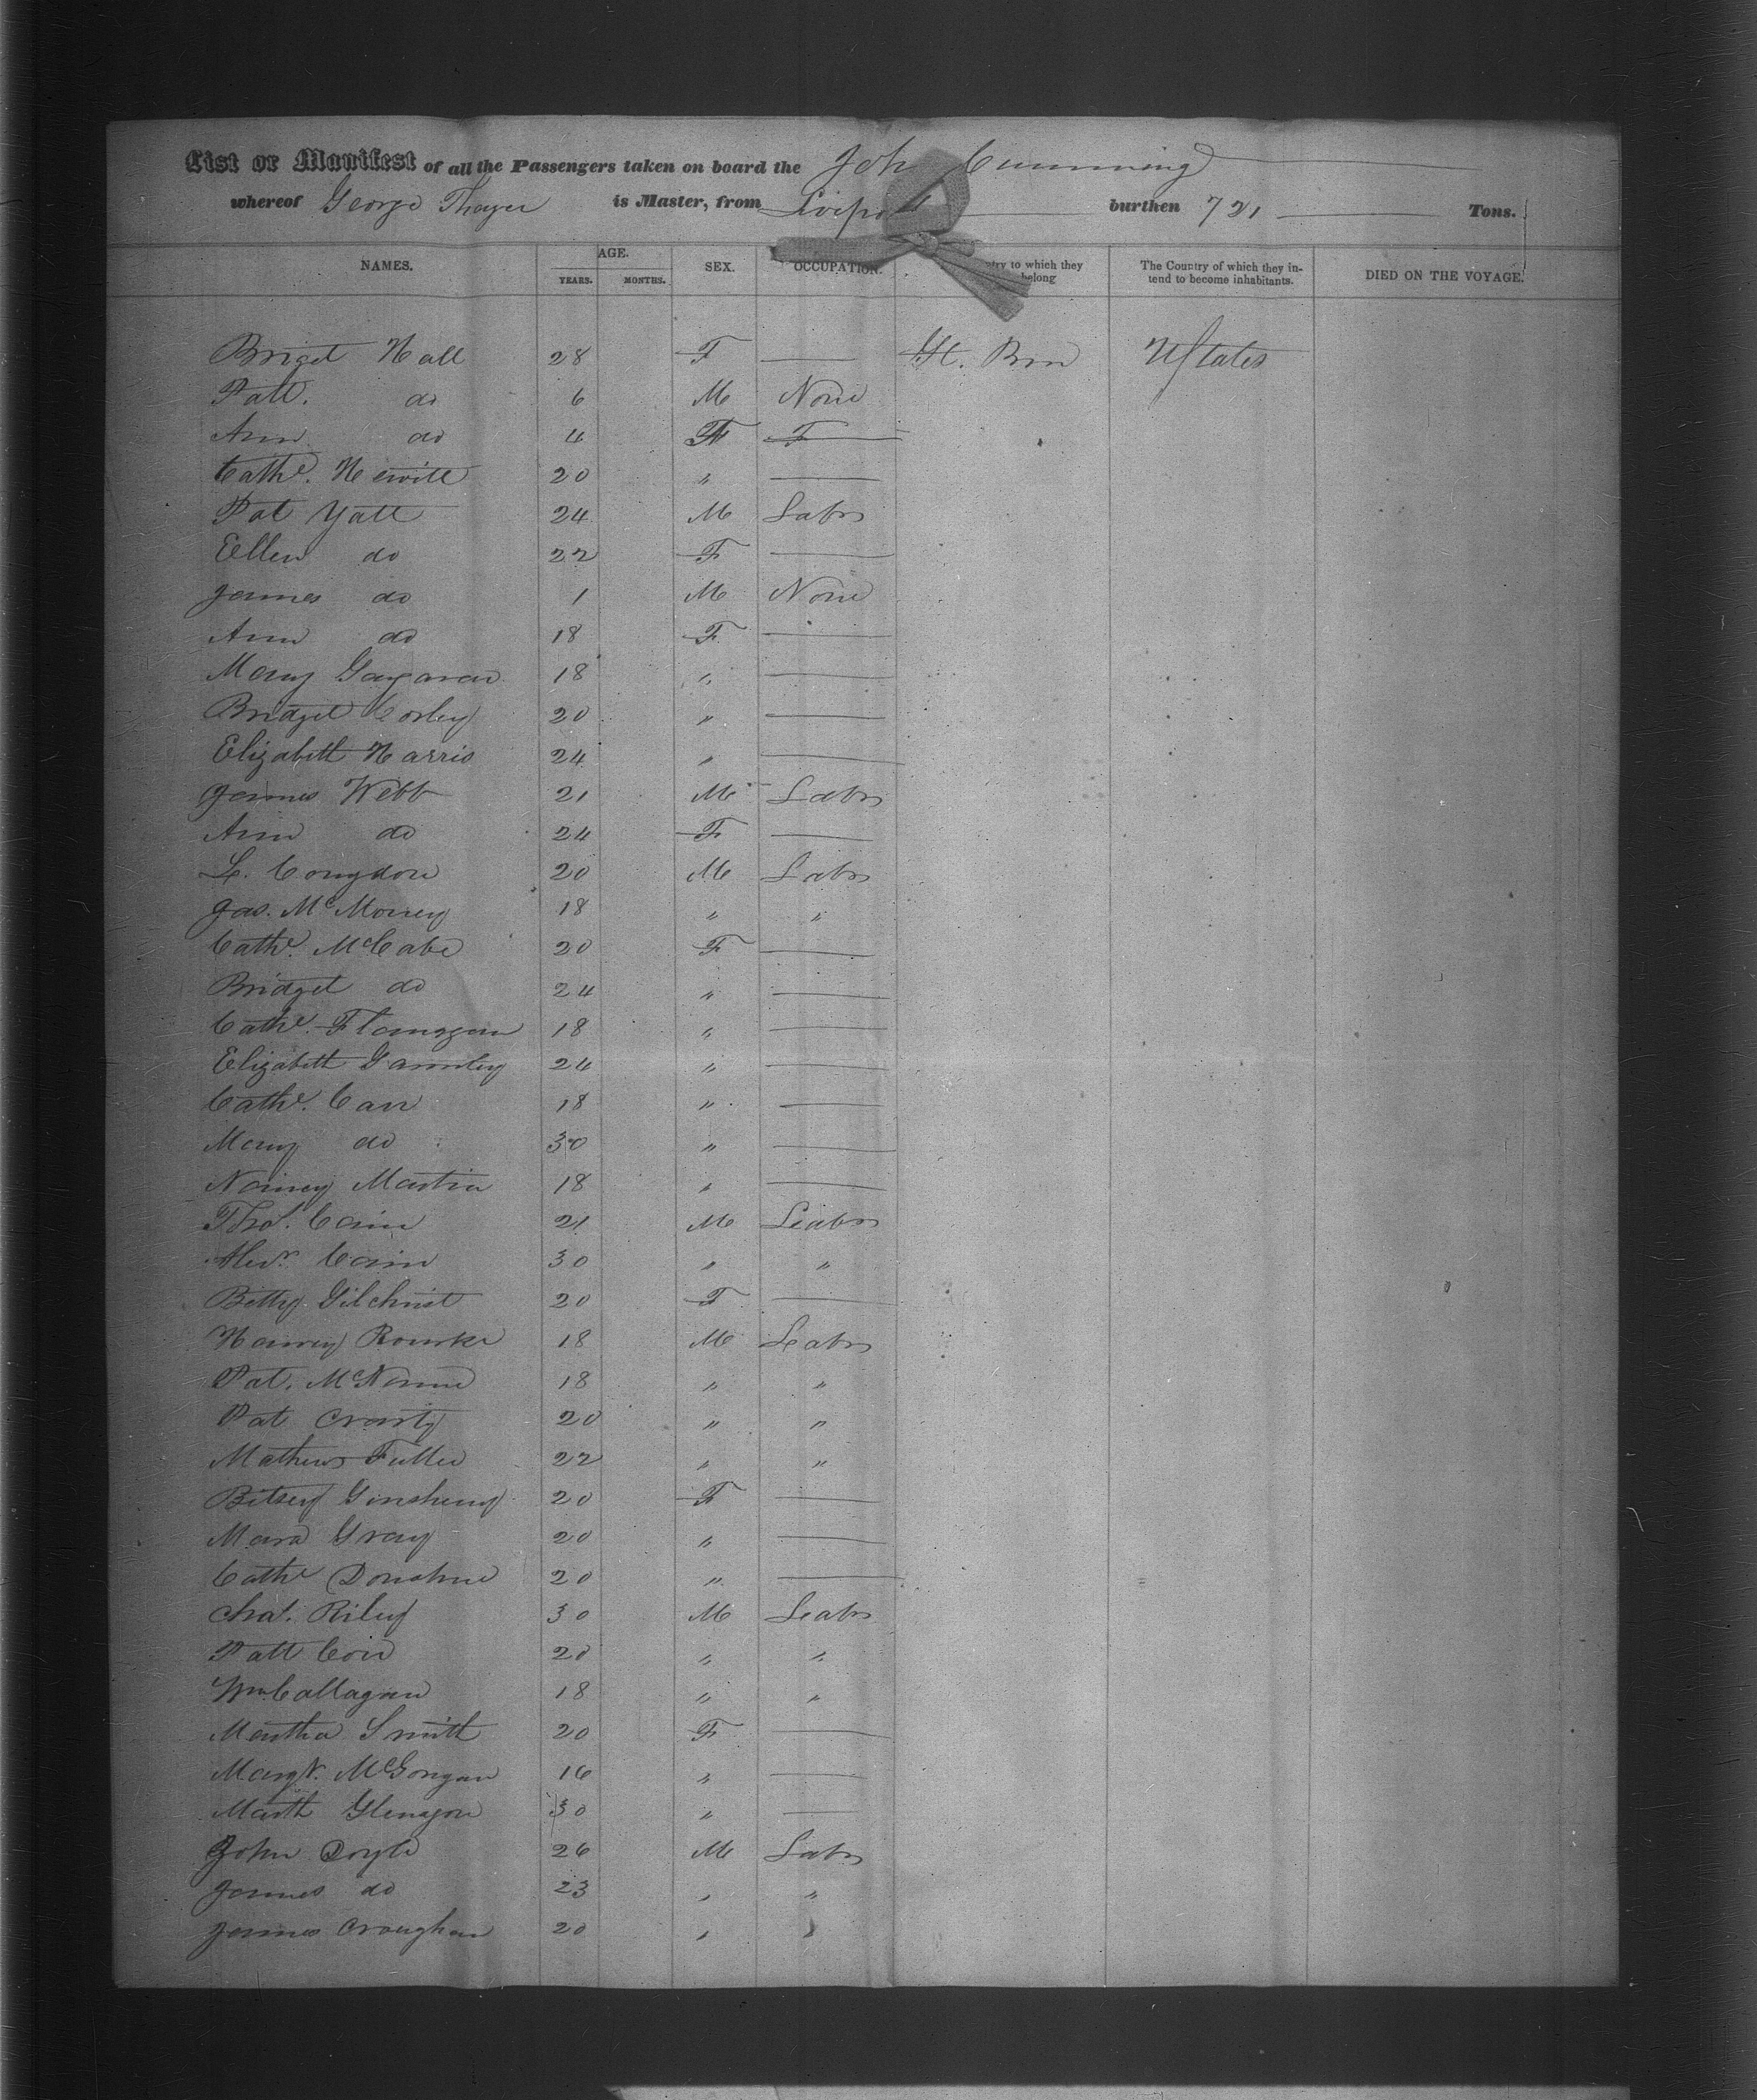 List or Manifest of all the Passengers taken on board the Joh Cumming
whereof George Thayer is Master, from Liverpool burthen 721 Tons.
NAMES. AGE. YEARS. MONTHS. SEX. OCCUPATION. to which they belong The Country of which they intend to become inhabitants. DIED ON THE VOYAGE.
Briget Hall 28 F — Gt. Brn UStates
Patt. do 6 M None
Ann do 4 F
Cathe. Hewitt 20 " —
Pat Yatt 24 M Labr
Ellen do 22 F —
James do 1 M None
Ann do 18 F —
Mary 18 " —
Bridget Corley 20 " —
Elizabeth Harris 24 " —
James Webb 21 M Labr
Ann do 24 F —
L. Congdon 20 M Labr
Jas. McMoney 18 " "
Cathe. McCabe 20 F —
Bridget do 24 " —
Cathe. Flanagan 18 " —
Elizabeth 24 " —
Cathe. Carr 18 " —
Mary do 30 " —
Nancy Martin 18 " —
Thos. Cain 21 M Labr
Alexr. Cain 30 " "
Betty Gilchrist 20 F —
Rourke 18 M Labr
Pat. 18 " "
Pat 20 " "
Mathew Fuller 22 " "
Betsey 20 F —
Gray 20 " —
Cathe Donohue 20 " —
Chas. Riley 30 M Labr
Patt 20 " "
Wm. Callagan 18 " "
Martha Smith 20 F —
Margt. 16 " —
30 " —
John Doyle 26 M Labr
James do 23 " "
James Croughan 20 " "